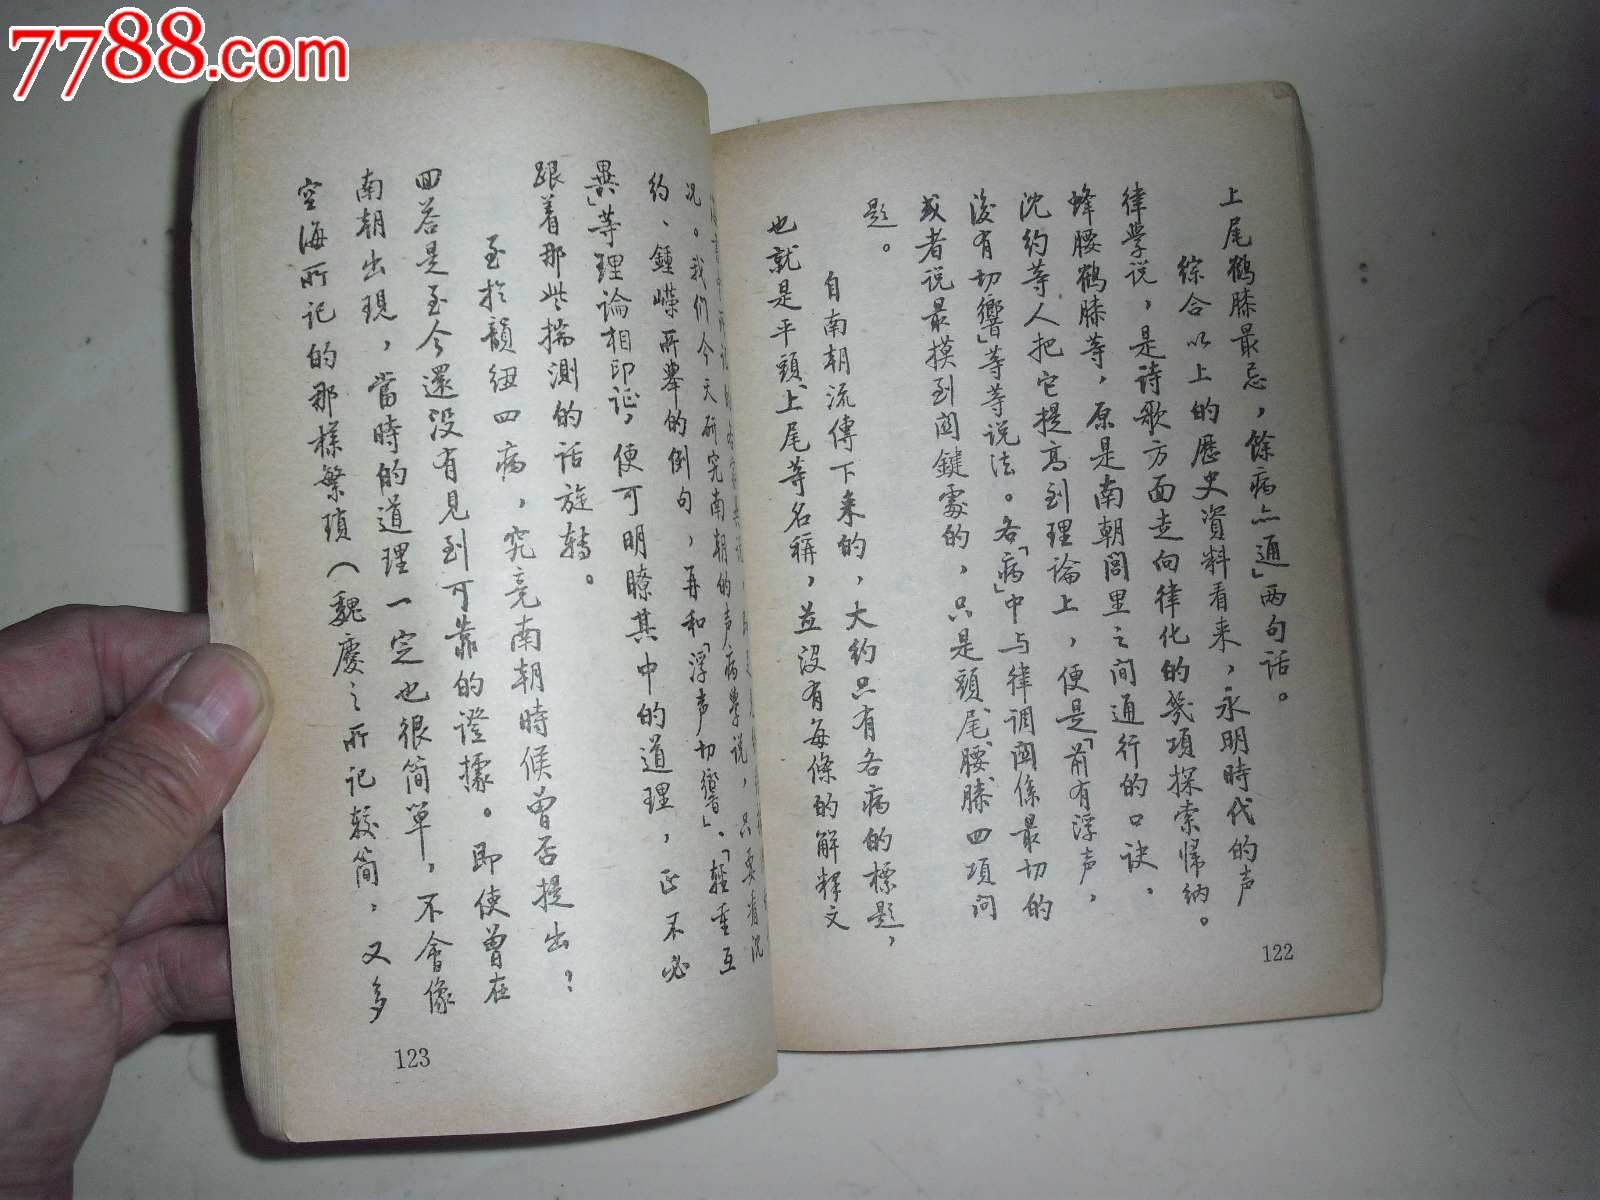 7788.com
上尾鹤膝最忌，餘病亦通」两句话。
綜合以上的歷史資料看来，永明時代的声
律學说，是诗歌方面走向律化的幾項探索归纳。
蜂腰鹤膝等，原是南朝閭里之间通行的口诀，
沈约等人把它提高到理論上，便是「前有浮声，
後有切響」等等说法。各「病」中与律调関係最切的
或者说最摸到関鍵處的，只是頭、尾、腰、膝四項问
题。
自南朝流傳下来的，大约只有各病的標题，
也就是平頭、上尾等名稱，並没有每條的解释文
122
况。我们今天研究南朝的声病學说，只要看沈
约、鍾嶸所舉的例句，再和「浮声切響」、「輕重互
異」等理論相印证，便可明瞭其中的道理，正不必
跟着那些揣测的话旋转。
至於韻纽四病，究竞南朝時候曾否提出？
回答是至今還没有見到可靠的證據。即使曾在
南朝出現，當時的道理一定也很简單，不會像
空海所记的那樣繁琐（魏慶之所记较简，又多
123